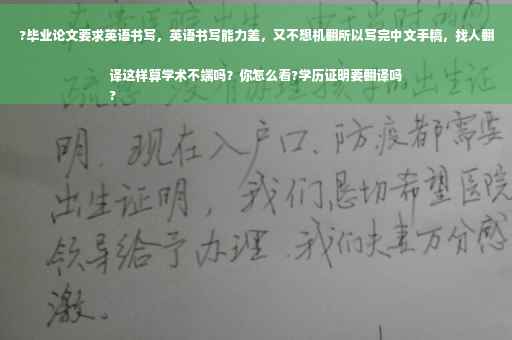 ?毕业论文要求英语书写，英语书写能力差，又不想机翻所以写完中文手稿，找人翻
译这样算学术不端吗？你怎么看?学历证明要翻译吗
?
明．现在入户口、防疫都需要
出生证明，我们恳切希望医院
领导给予办理．我们夫妻万分感
激。